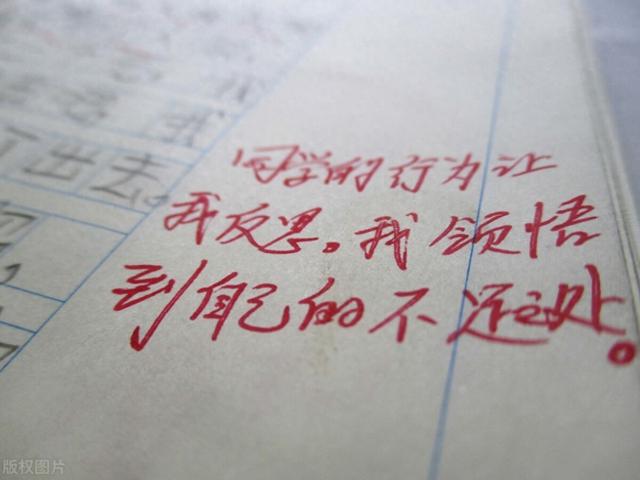 出去。
同学的行为让
我反思。我领悟
到自己的不足之处。
版权图片